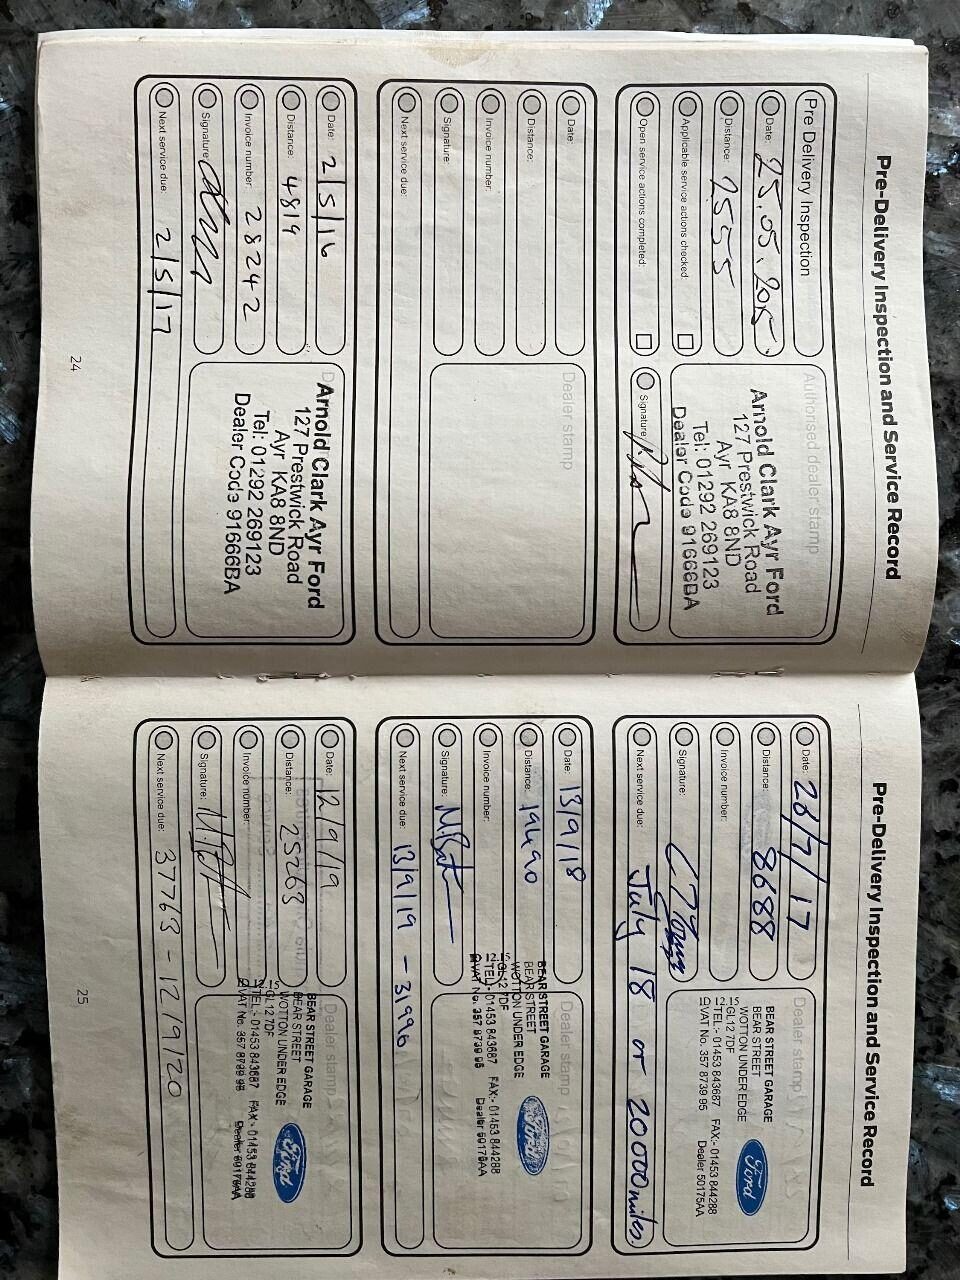 Pre-Delivery Inspection and Service Record
Pre Delivery Inspection
Date: 25.05.2015.
Distance: 2555
Applicable service actions checked:
Open service actions completed:
Authorised dealer stamp
Arnold Clark Ayr Ford
127 Prestwick Road
Ayr KA8 8ND
Tel: 01292 269123
Dealer Code 91666BA
Signature:
Date:
Distance:
Invoice number:
Signature:
Next service due:
Dealer stamp
Date: 2/5/16
Distance: 4819
Invoice number: 28242
Signature:
Next service due: 2/5/17
Arnold Clark Ayr Ford
127 Prestwick Road
Ayr KA8 8ND
Tel: 01292 269123
Dealer Code 91666BA
24
Pre-Delivery Inspection and Service Record
Date: 28/7/17
Distance: 8688
Invoice number:
Signature:
Next service due: July 18 or 20000 miles.
Dealer stamp
BEAR STREET GARAGE
BEAR STREET
WOTTON UNDER EDGE
GL12 7DF
TEL:- 01453 843687 FAX:- 01453 844288
VAT No. 357 8739 95 Dealer 50175AA
Ford
Date: 13/9/18
Distance: 19490
Invoice number:
Signature:
Next service due: 13/9/19 - 31996
Dealer stamp
BEAR STREET GARAGE
BEAR STREET
WOTTON UNDER EDGE
GL12 7DF
TEL:- 01453 843687 FAX:- 01453 844288
VAT No. 357 8739 95 Dealer 50175AA
Ford
Date: 12/9/19
Distance: 25268
Invoice number:
Signature:
Next service due: 37768 - 12/9/20
Dealer stamp
BEAR STREET GARAGE
BEAR STREET
WOTTON UNDER EDGE
GL12 7DF
TEL:- 01453 843687 FAX:- 01453 844288
VAT No. 357 8739 95 Dealer 50175AA
Ford
25